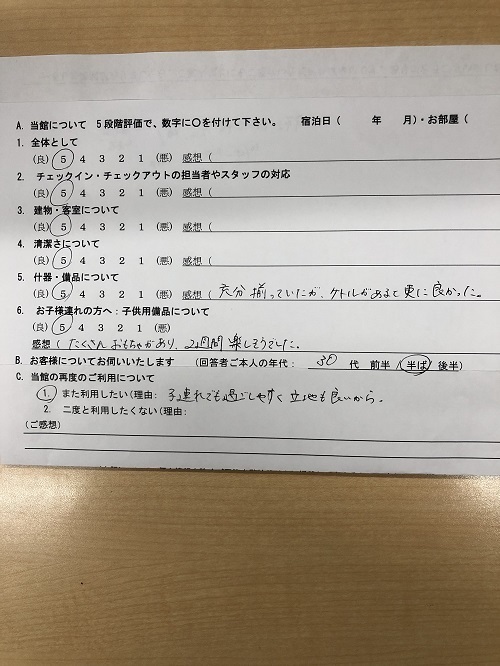 A. 当館について 5段階評価で、数字に〇を付けて下さい。 宿泊日( 年 月)・お部屋(
1. 全体として
(良) 5 4 3 2 1 (悪) 感想(
2. チェックイン・チェックアウトの担当者やスタッフの対応
(良) 5 4 3 2 1 (悪) 感想(
3. 建物・客室について
(良) 5 4 3 2 1 (悪) 感想(
4. 清潔さについて
(良) 5 4 3 2 1 (悪) 感想(
5. 什器・備品について
(良) 5 4 3 2 1 (悪) 感想( 充分揃っていたが、ケトルがあると更に良かった。
6. お子様連れの方へ:子供用備品について
(良) 5 4 3 2 1 (悪)
感想( たくさんおもちゃがあり、2週間楽しそうでした。
B. お客様についてお伺いいたします (回答者ご本人の年代: 30 代 前半/半ば/後半)
C. 当館の再度のご利用について
1. また利用したい(理由: 子連れでも過ごしやすく立地も良いから。
2. 二度と利用したくない(理由:
(ご感想)